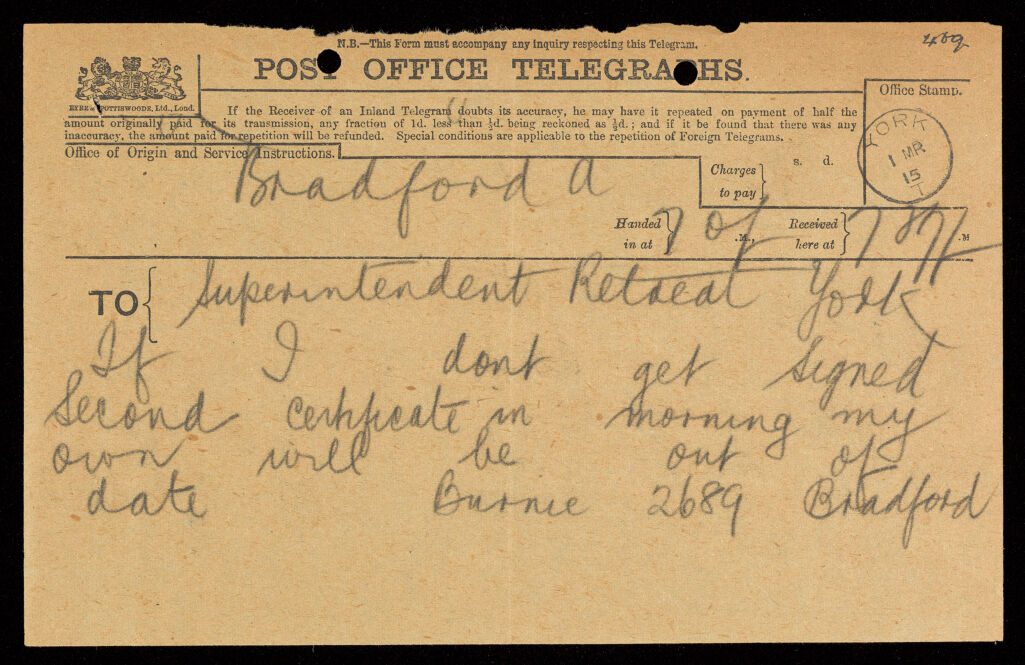 469
N.B.—This Form must accompany any inquiry respecting this Telegram.
POST OFFICE TELEGRAPHS.
EYRE & SPOTTISWOODE, Ltd., Lond.
If the Receiver of an Inland Telegram doubts its accuracy, he may have it repeated on payment of half the
amount originally paid for its transmission, any fraction of 1d. less than ½d. being reckoned as ½d.; and if it be found that there was any
inaccuracy, the amount paid for repetition will be refunded. Special conditions are applicable to the repetition of Foreign Telegrams.
Office Stamp.
YORK
1 MR
15
T
Office of Origin and Service Instructions.
Charges to pay
s. d.
Bradford A
Handed in at 7 .M.,
Received here at 7 .M
TO Superintendent Retreat York
If I dont get signed
second certificate in morning my
own will be out of
date Burnie 2689 Bradford